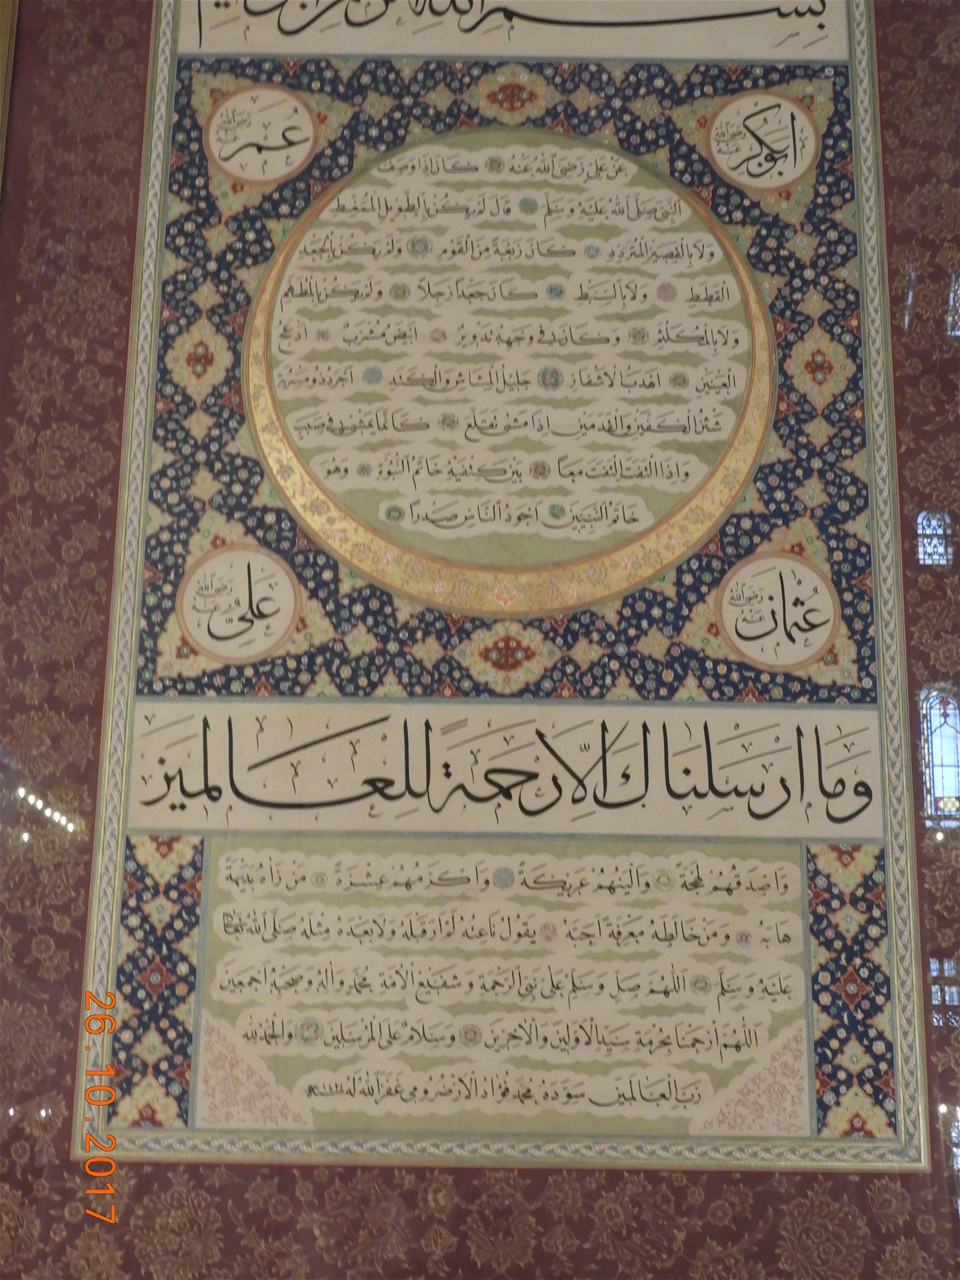 بسم الله الرحمن الرحيم
ابوبكر رضى الله عنه
عمر رضى الله عنه
عن على رضى الله عنه كان اذا وصف
النبى صلى الله عليه وسلم قال لم يكن بالطويل الممغط
ولا بالقصير المتردد كان ربعة من القوم ولم يكن بالجعد
القطط ولا بالسبط كان جعدا رجلا ولم يكن بالمطهم
ولا بالمكلثم وكان فى وجهه تدوير ابيض مشرب ادعج
العينين اهدب الاشفار جليل المشاش والكتد اجرد ذو مسربة
شثن الكفين والقدمين اذا مشى تقلع كانما يمشى فى صبب
واذا التفت التفت معا بين كتفيه خاتم النبوة وهو
خاتم النبيين اجود الناس صدرا
عثمان رضى الله عنه
على رضى الله عنه
وما ارسلناك الا رحمة للعالمين
واصدقهم لهجة والينهم عريكة واكرمهم عشرة من رآه بديهة
هابه ومن خالطه معرفة احبه يقول ناعته لم ار قبله ولا بعده مثله صلى الله تعالى
عليه وسلم اللهم صل وسلم على نبى الرحمة وشفيع الامة محمد وآله وصحبه اجمعين
اللهم ارحمنا بحرمة سيد الاولين والآخرين وسلام على المرسلين والحمد لله
رب العالمين سوده محمد فؤاد الارضرومى غفر الله له
26.10.2017